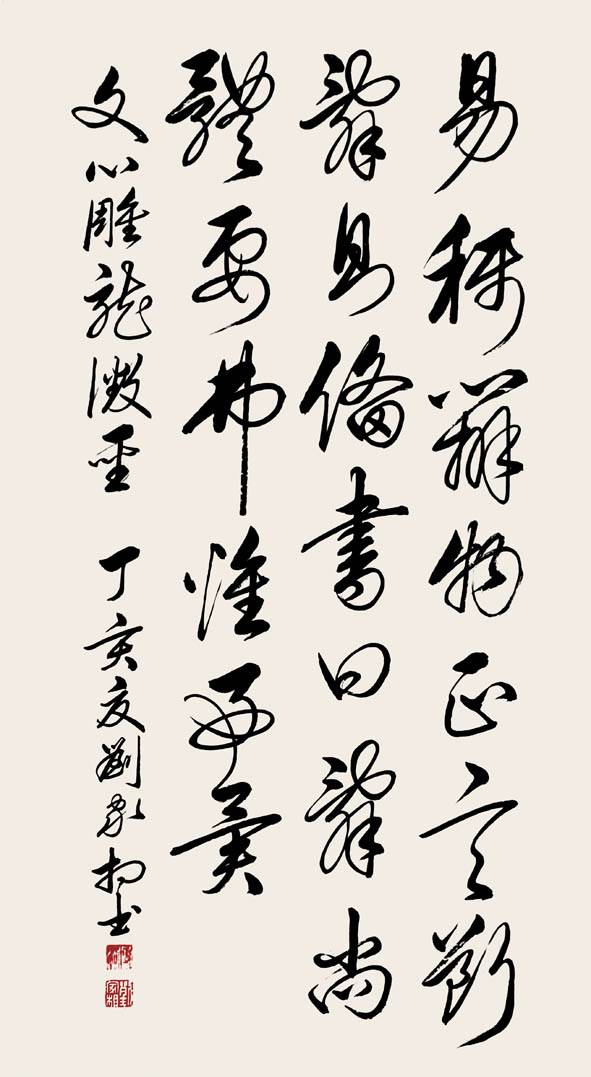 易稱辨物正言斷
辭則備書曰辭尚
體要弗惟好異
文心雕龍徵聖 丁亥夏劉家書